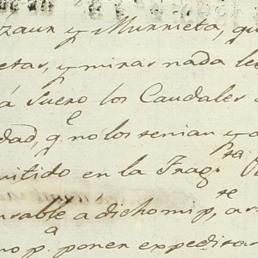 zaur y Murrieta, qu
etas, y miras nada le
á Suero los Caudales
dad, qe no los tenian y a
mitido en la Frag.ta
nsable a dicho mi p.te, a
no p.a poner expedita